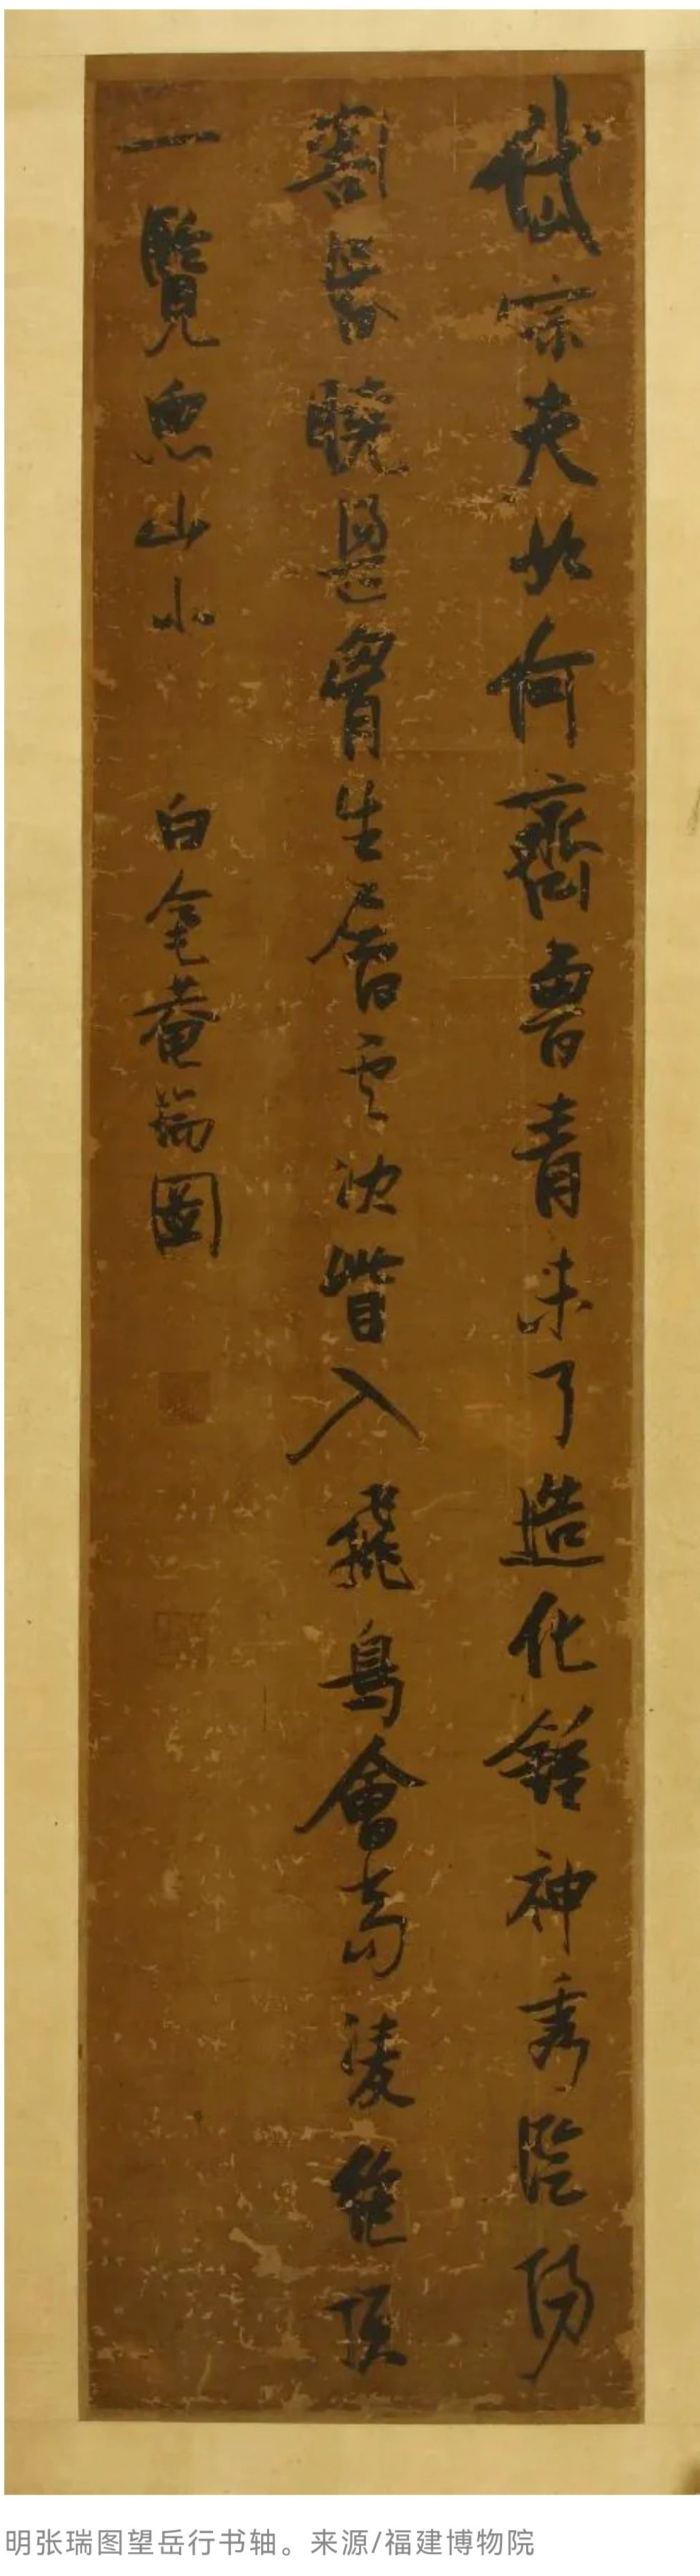 岱宗夫如何齊魯青未了造化鍾神秀陰陽
割昏曉盪胷生層雲決眥入飛鳥會當凌絕頂
一覽衆山小 白毫菴瑞圖
明张瑞图望岳行书轴。来源/福建博物院